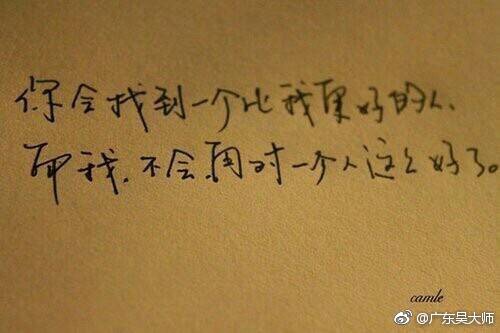 你会找到一个比我更好的人、
而我、不会再对一个人这么好了。
camle
@广东吴大师